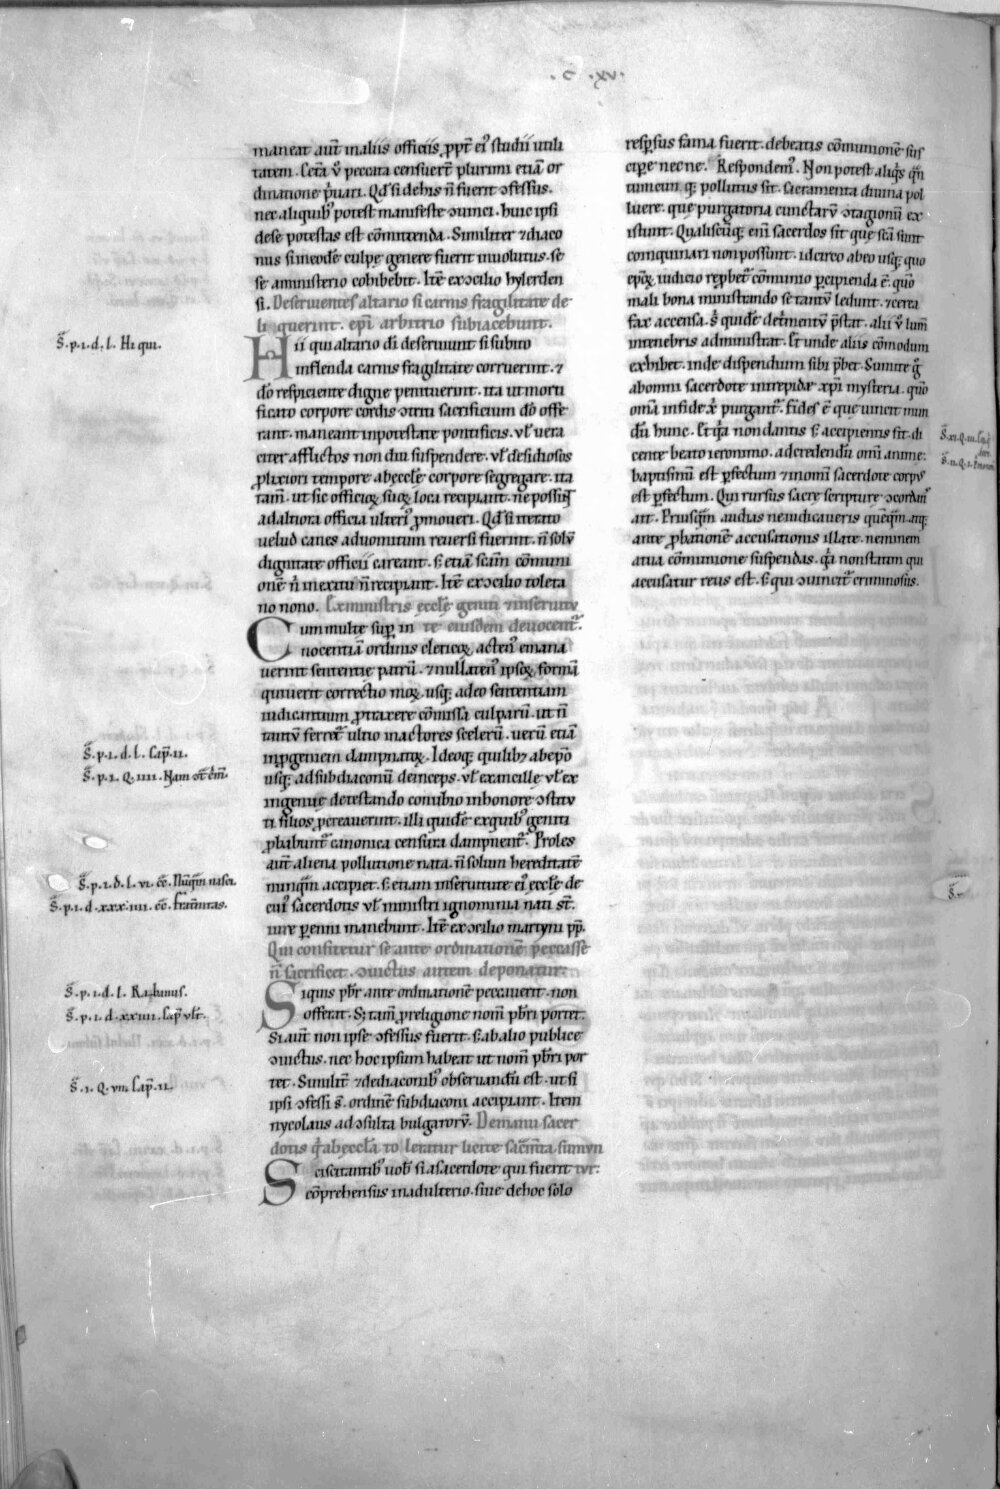 maneat aut̄ in aliis officiis ꝓpt̄ ei᷒ studii utili
tatem. Cet̄a ṽ peccata censuer̄t plurimi etiā or
dinatione p̄uari. Qđ si de his n̄ fuerit ↄfessus.
nec aliquib᷒ potest manifeste ↄuinci. huic ipsi
de se potestas est cōmittenda. Similiter ⁊ diaco
nus si in eodē culpę genere fuerit inuolutus. se
se a ministerio cohibebit. Itē ex ↄcilio hylerden
si. Deseruientes altario si carnis fragilitate de
li querint. ep̄i arbitrio subiacebunt.
Hii qui altario dī deseruiunt si subito
in flenda carnis fragilitate corruerint. ⁊
dō respiciente digne penituerint. ita ut morti
ficato corpore cordis ↄtriti sacrificium dō offe
rant. maneant in potestate pontificis. ul̄ uera
citer afflictos non diu suspendere. ul̄ desidiosos
ꝓlixiori tempore ab ecclē corpore segregare. ita
tam̄. ut sic officioꝝ suoꝝ loca recipiant. ne possint
ad altiora officia ulteri᷒ ꝓmoueri. Qđ si iterato
uelud canes ad uomitum reuersi fuerint. n̄ solū
dignitate officii careant. s; etiā scām cōmuni
onē n̄ in exitu n̄ recipiant. Itē ex ↄcilio toleta
no nono. Ex ministris ecclē geniti in seruitu
te eiusdem deuocent᷑.
Cum multe suꝑ in
nocentiā ordinis clericoꝝ acten᷒ emana
uerint sententie patrū. ⁊ nullaten᷒ ipsoꝝ formā
quiuerit correctio moꝝ. usq; adeo sententiam
iudicantium ꝓtraxere cōmissa culparū. ut n̄
tantū ferret᷑ ultio in actores scelerū. uerū etiā
in ꝓgeniem dampnatoꝝ. Ideoq; quilib; ab ep̄o
usq; ad subdiaconū deinceps. ul̄ ex ancille ul̄ ex
ingenuę detestando conubio in honore ↄstitu
ti filios ꝓcreauerint. illi quidē ex quib᷒ geniti
ꝓbabunt᷑ canonica censura dampnent᷑. Proles
aut̄ aliena pollutione nata. n̄ solum hereditatē
nunq̄m accipiet. s; etiam in seruitute ei᷒ ecclē de
cui᷒ sacerdotis ul̄ ministri ignominia nati st̄.
iure ꝑenni manebunt. Itē ex ↄcilio martyni pp̄.
Qui confitetur se ante ordinationē peccasse
n̄ sacrificet. ↄuictus autem deponatur.
Siquis pbr̄ ante ordinationē peccauerit. non
offerat. S; tam̄ ꝓ religione nom̄ pbr̄i portet.
Si aut̄ non ipse ↄfessus fuerit. s; ab alio publice
ↄuictus. nec hoc ipsum habeat ut nom̄ pbr̄i por
tet. Similit̄ ⁊ de diaconib᷒ obseruandū est. ut si
ipsi ↄfessi st̄. ordinē subdiaconi accipiant. Item
nycolaus ad ↄsulta bulgarorū. De manu sacer
dotis q̇ ab eccl̄a tolleratur licite sac̄mta sumun
tur.
Sciscitantib᷒ uob᷒ si a sacerdote qui fuerit
cōprehensus in adulterio. siue de hoc solo
resꝑsus fama fuerit. debeatis cōmunionē sus
cipe necne. Respondem᷒. Non potest aliq̇s q̄n
tumcun q; pollutus sit. sacramenta diuina pol
luere. que purgatoria cunctarū ↄtagionū ex
istunt. Qualiscūq; enī sacerdos sit que scā sunt
coinquinari non possunt. idcirco ab eo usq; quo
ep̄oꝝ iudicio reꝓbet᷑ cōmunio ꝑcipienda ē. quō
mali bona ministrando se tantū ledunt. ⁊ cerea
fax accensa. s; quidē det̄mentū p̄stat. alii ṽ lum̄
in tenebris administrat. Et unde aliis cōmodum
exhibet. inde dispendium sibi p̄bet. Sumite g̊
ab omni sacerdote intrepide xp̄i mysteria. quō
om̄a in fide x̄ purgant᷑. Fides ē que uincit mun
dū hunc. Et q̇a non dantis s; accipientis sit. di
cente beato ieronimo. ad credendū omni anime.
baptismū est ꝑfectum ⁊ in omni sacerdote corp᷒
est ꝑfectum. Qui rursus sacre scripture ↄcordan̄
ait. Priusq̄m audias ne iudicaueris quēq̄m. atq;
ante ꝓbationē accusationis illate. neminem
a tua cōmunione suspendas. q̇a non statim qui
accusatur reus est. s; qui ↄuincit᷑ criminosus.
S̄. p. 1. d. l. Hi qui.
S̄. p. 1. d. l. Cap̄. 11.
S̄. p. 1. Q. 1111. Nam
S̄. p. 1. d. l. Rabanus.
S̄. p. 1. d. xxiiii. Cap̄ ult̄.
S̄. 1. Q. vii. Cap̄. 11.